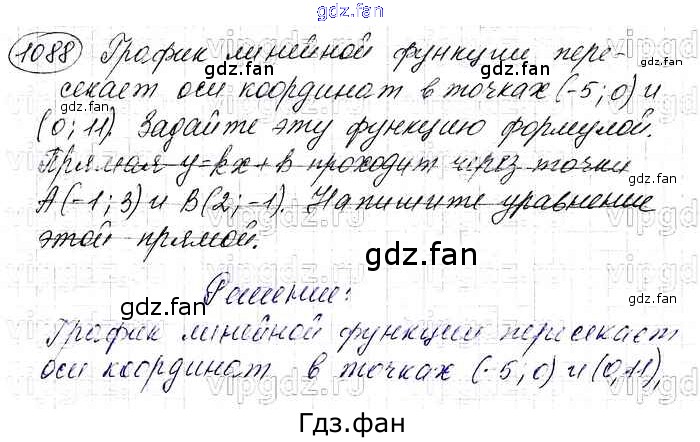 gdz.fan
1088 График линейной функции пере-
секает оси координат в точках (-5; 0) и
(0; 11). Задайте эту функцию формулой.
Прямая y=kx+b проходит через точки
A(-1; 3) и B(2; -1). Напишите уравнение
этой прямой.
gdz.fan
gdz.fan
gdz.fan
gdz.fan
Решение:
gdz.fan
График линейной функции пересекает
оси координат в точках (-5; 0) и (0; 11),
Гдз.фан